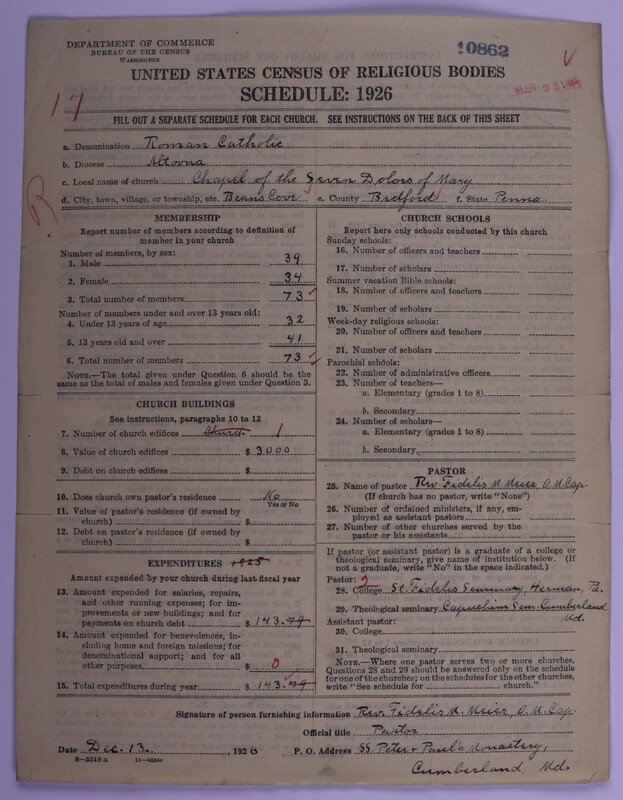 DEPARTMENT OF COMMERCE
BUREAU OF THE CENSUS
WASHINGTON
10862
UNITED STATES CENSUS OF RELIGIOUS BODIES
SCHEDULE: 1926
17
FILL OUT A SEPARATE SCHEDULE FOR EACH CHURCH. SEE INSTRUCTIONS ON THE BACK OF THIS SHEET
a. Denomination Roman Catholic
b. Diocese Altoona
c. Local name of church Chapel of the Seven Dolors of Mary
d. City, town, village, or township, etc. Beans Cove e. County Bedford f. State Penna
R
MEMBERSHIP
Report number of members according to definition of
member in your church
Number of members, by sex:
1. Male 39
2. Female 34
3. Total number of members 73
Number of members under and over 13 years old:
4. Under 13 years of age 32
5. 13 years old and over 41
6. Total number of members 73
NOTE.—The total given under Question 6 should be the
same as the total of males and females given under Question 3.
CHURCH BUILDINGS
See instructions, paragraphs 10 to 12
7. Number of church edifices Church 1
8. Value of church edifices $ 3000
9. Debt on church edifices $
10. Does church own pastor's residence No
Yes or No
11. Value of pastor's residence (if owned by
church) $
12. Debt on pastor's residence (if owned by
church) $
EXPENDITURES 1925
Amount expended by your church during last fiscal year
13. Amount expended for salaries, repairs,
and other running expenses; for im-
provements or new buildings; and for
payments on church debt $ 143.79
14. Amount expended for benevolences, in-
cluding home and foreign missions; for
denominational support; and for all
other purposes $ 0
15. Total expenditures during year $ 143.79
CHURCH SCHOOLS
Report here only schools conducted by this church
Sunday schools:
16. Number of officers and teachers
17. Number of scholars
Summer vacation Bible schools:
18. Number of officers and teachers
19. Number of scholars
Week-day religious schools:
20. Number of officers and teachers
21. Number of scholars
Parochial schools:
22. Number of administrative officers
23. Number of teachers—
a. Elementary (grades 1 to 8)
b. Secondary
24. Number of scholars—
a. Elementary (grades 1 to 8)
b. Secondary
PASTOR
25. Name of pastor Rev. Fidelis M. Meier, O.M.Cap.
(If church has no pastor, write "None")
26. Number of ordained ministers, if any, em-
ployed as assistant pastors
27. Number of other churches served by the
pastor or his assistants
If pastor (or assistant pastor) is a graduate of a college or
theological seminary, give name of institution below. (If
not a graduate, write "No" in the space indicated.)
Pastor: 2
28. College St. Fidelis Seminary, Herman, Pa.
29. Theological seminary Capuchin Sem. Cumberland
Md.
Assistant pastor:
30. College
31. Theological seminary
NOTE.—Where one pastor serves two or more churches,
Questions 28 and 29 should be answered only on the schedule
for one of the churches; on the schedules for the other churches,
write "See schedule for church."
Signature of person furnishing information Rev. Fidelis M. Meier, O.M.Cap.
Official title Pastor
Date Dec. 13, 1926 P. O. Address SS. Peter & Paul's Monastery,
Cumberland, Md.
8—5518a